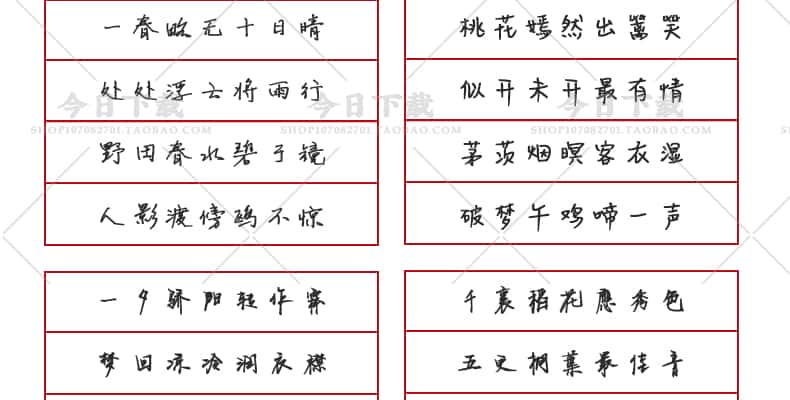 一春略无十日晴
处处浮云将雨行
野田春水碧于镜
人影渡傍鸥不惊
桃花嫣然出篱笑
似开未开最有情
茅茨烟暝客衣湿
破梦午鸡啼一声
一夕骄阳转作霖
梦回凉冷润衣襟
千裏稻花應秀色
五更桐葉最佳音
今日下载 今日下载 今日下载
SHOP107082701.TAOBAO.COM SHOP107082701.TAOBAO.COM SHOP107082701.TAOBAO.COM